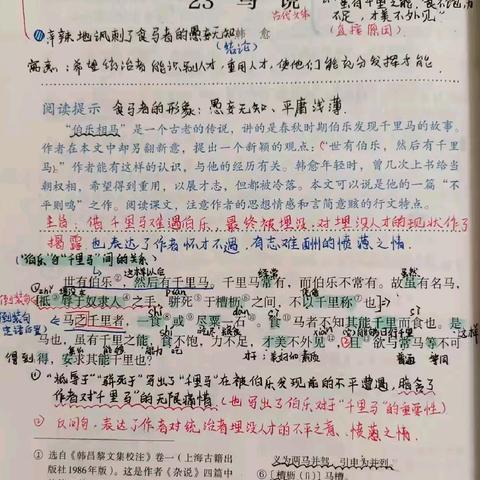 23 马说
古代文体
足,才美不外见。”
(直接原因)
辛辣地讽刺了食马者的愚妄无知
韩愈
寓意:希望统治者能识别人才,重用人才,使他们能充分发挥才能.
阅读提示 食马者的形象:愚妄无知、平庸浅薄.
“伯乐相马”是一个古老的传说,讲的是春秋时期伯乐发现千里马的故事。
作者在本文中却另翻新意,提出一个新颖的观点:“世有伯乐,然后有千里
马。”作者能有这样的认识,与他的经历有关。韩愈年轻时,曾几次上书给当
朝权相,希望得到重用,以展才志,但都被冷落。本文可以说是他的一篇“不
平则鸣”之作。阅读课文,注意作者的思想情感和言简意赅的行文特点。
主旨:借千里马难遇伯乐,最终被埋没,对埋没人才的现状作了
揭露,也表达了作者怀才不遇,有志难酬的愤懑之情.
(“伯乐”与“千里马”间的关系)
世有伯乐,然后有千里马。千里马常有,而伯乐不常有。故虽有名马,
祗辱于奴隶人之手,骈死于槽枥之间,不以千里称也。
马之千里者,一食或尽粟一石。食马者不知其能千里而食也。是
马也,虽有千里之能,食不饱,力不足,才美不外见,且欲与常马等不可
得,安求其能千里也?
① “祗辱于”“骈死于”写出了“千里马”在被伯乐发现前的不平遭遇,
作者对“千里马”的无限痛惜.(也写出了伯乐对于“千里马”的重要性)
② 反问句,表达了作者对统治者埋没人才的不平之鸣、愤懑之情.
① 选自《韩昌黎文集校注》卷一(上海古籍出
版社1986年版)。这是作者《杂说》四篇中
义为两马并驾,引申为并列。
⑥〔槽枥(lì)〕马槽。